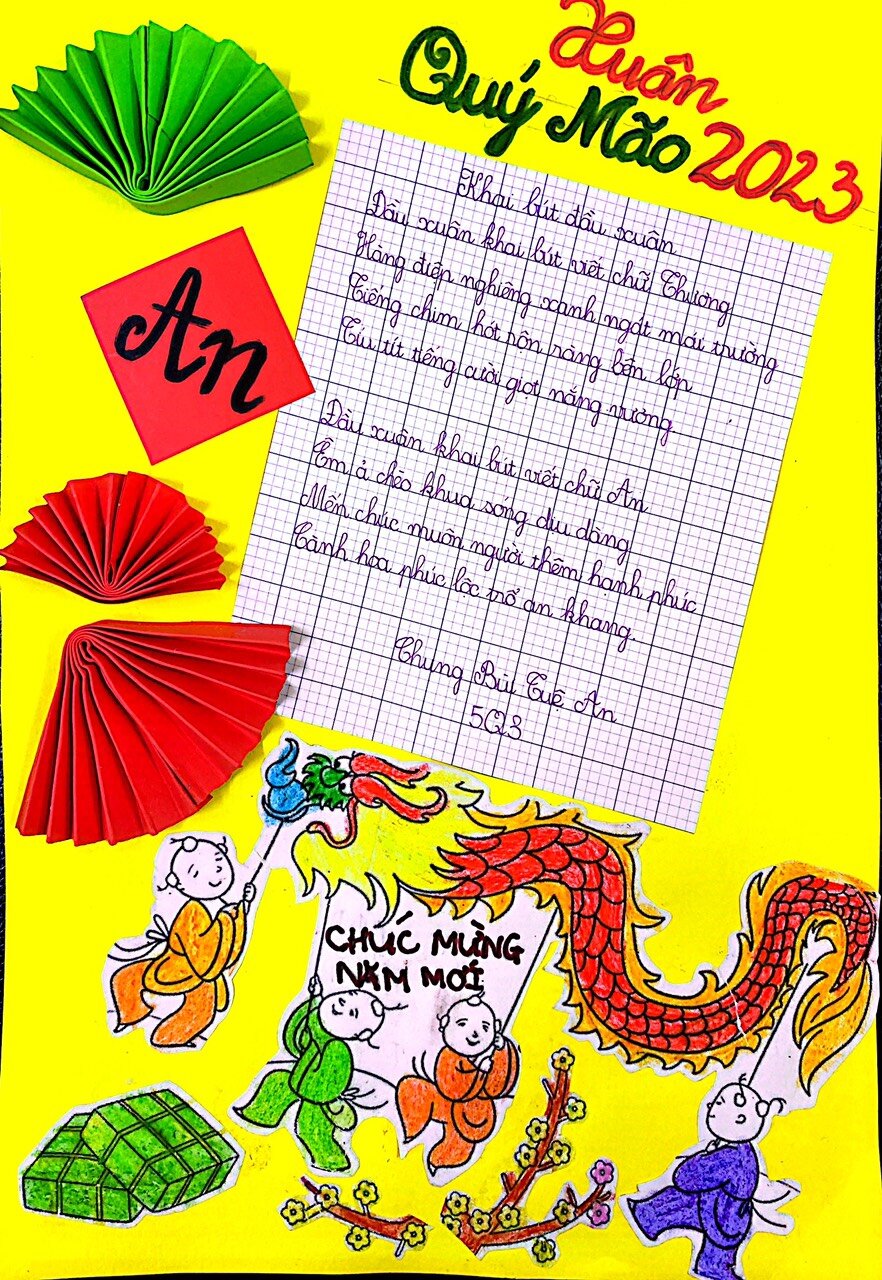 Xuân
Quý Mão 2023
Khai bút đầu xuân
Đầu xuân khai bút viết chữ Thương
Hàng điệp nghiêng xanh ngát mái trường
Tiếng chim hót rộn ràng bên lớp
Tíu tít tiếng cười giọt nắng vương
An
Đầu xuân khai bút viết chữ An
Êm ả chèo khua sóng dịu dàng
Mến chúc muôn người thêm hạnh phúc
Cành hoa phúc lộc trổ an khang.
Chung Bùi Tuệ An
5Q3
CHÚC MỪNG
NĂM MỚI